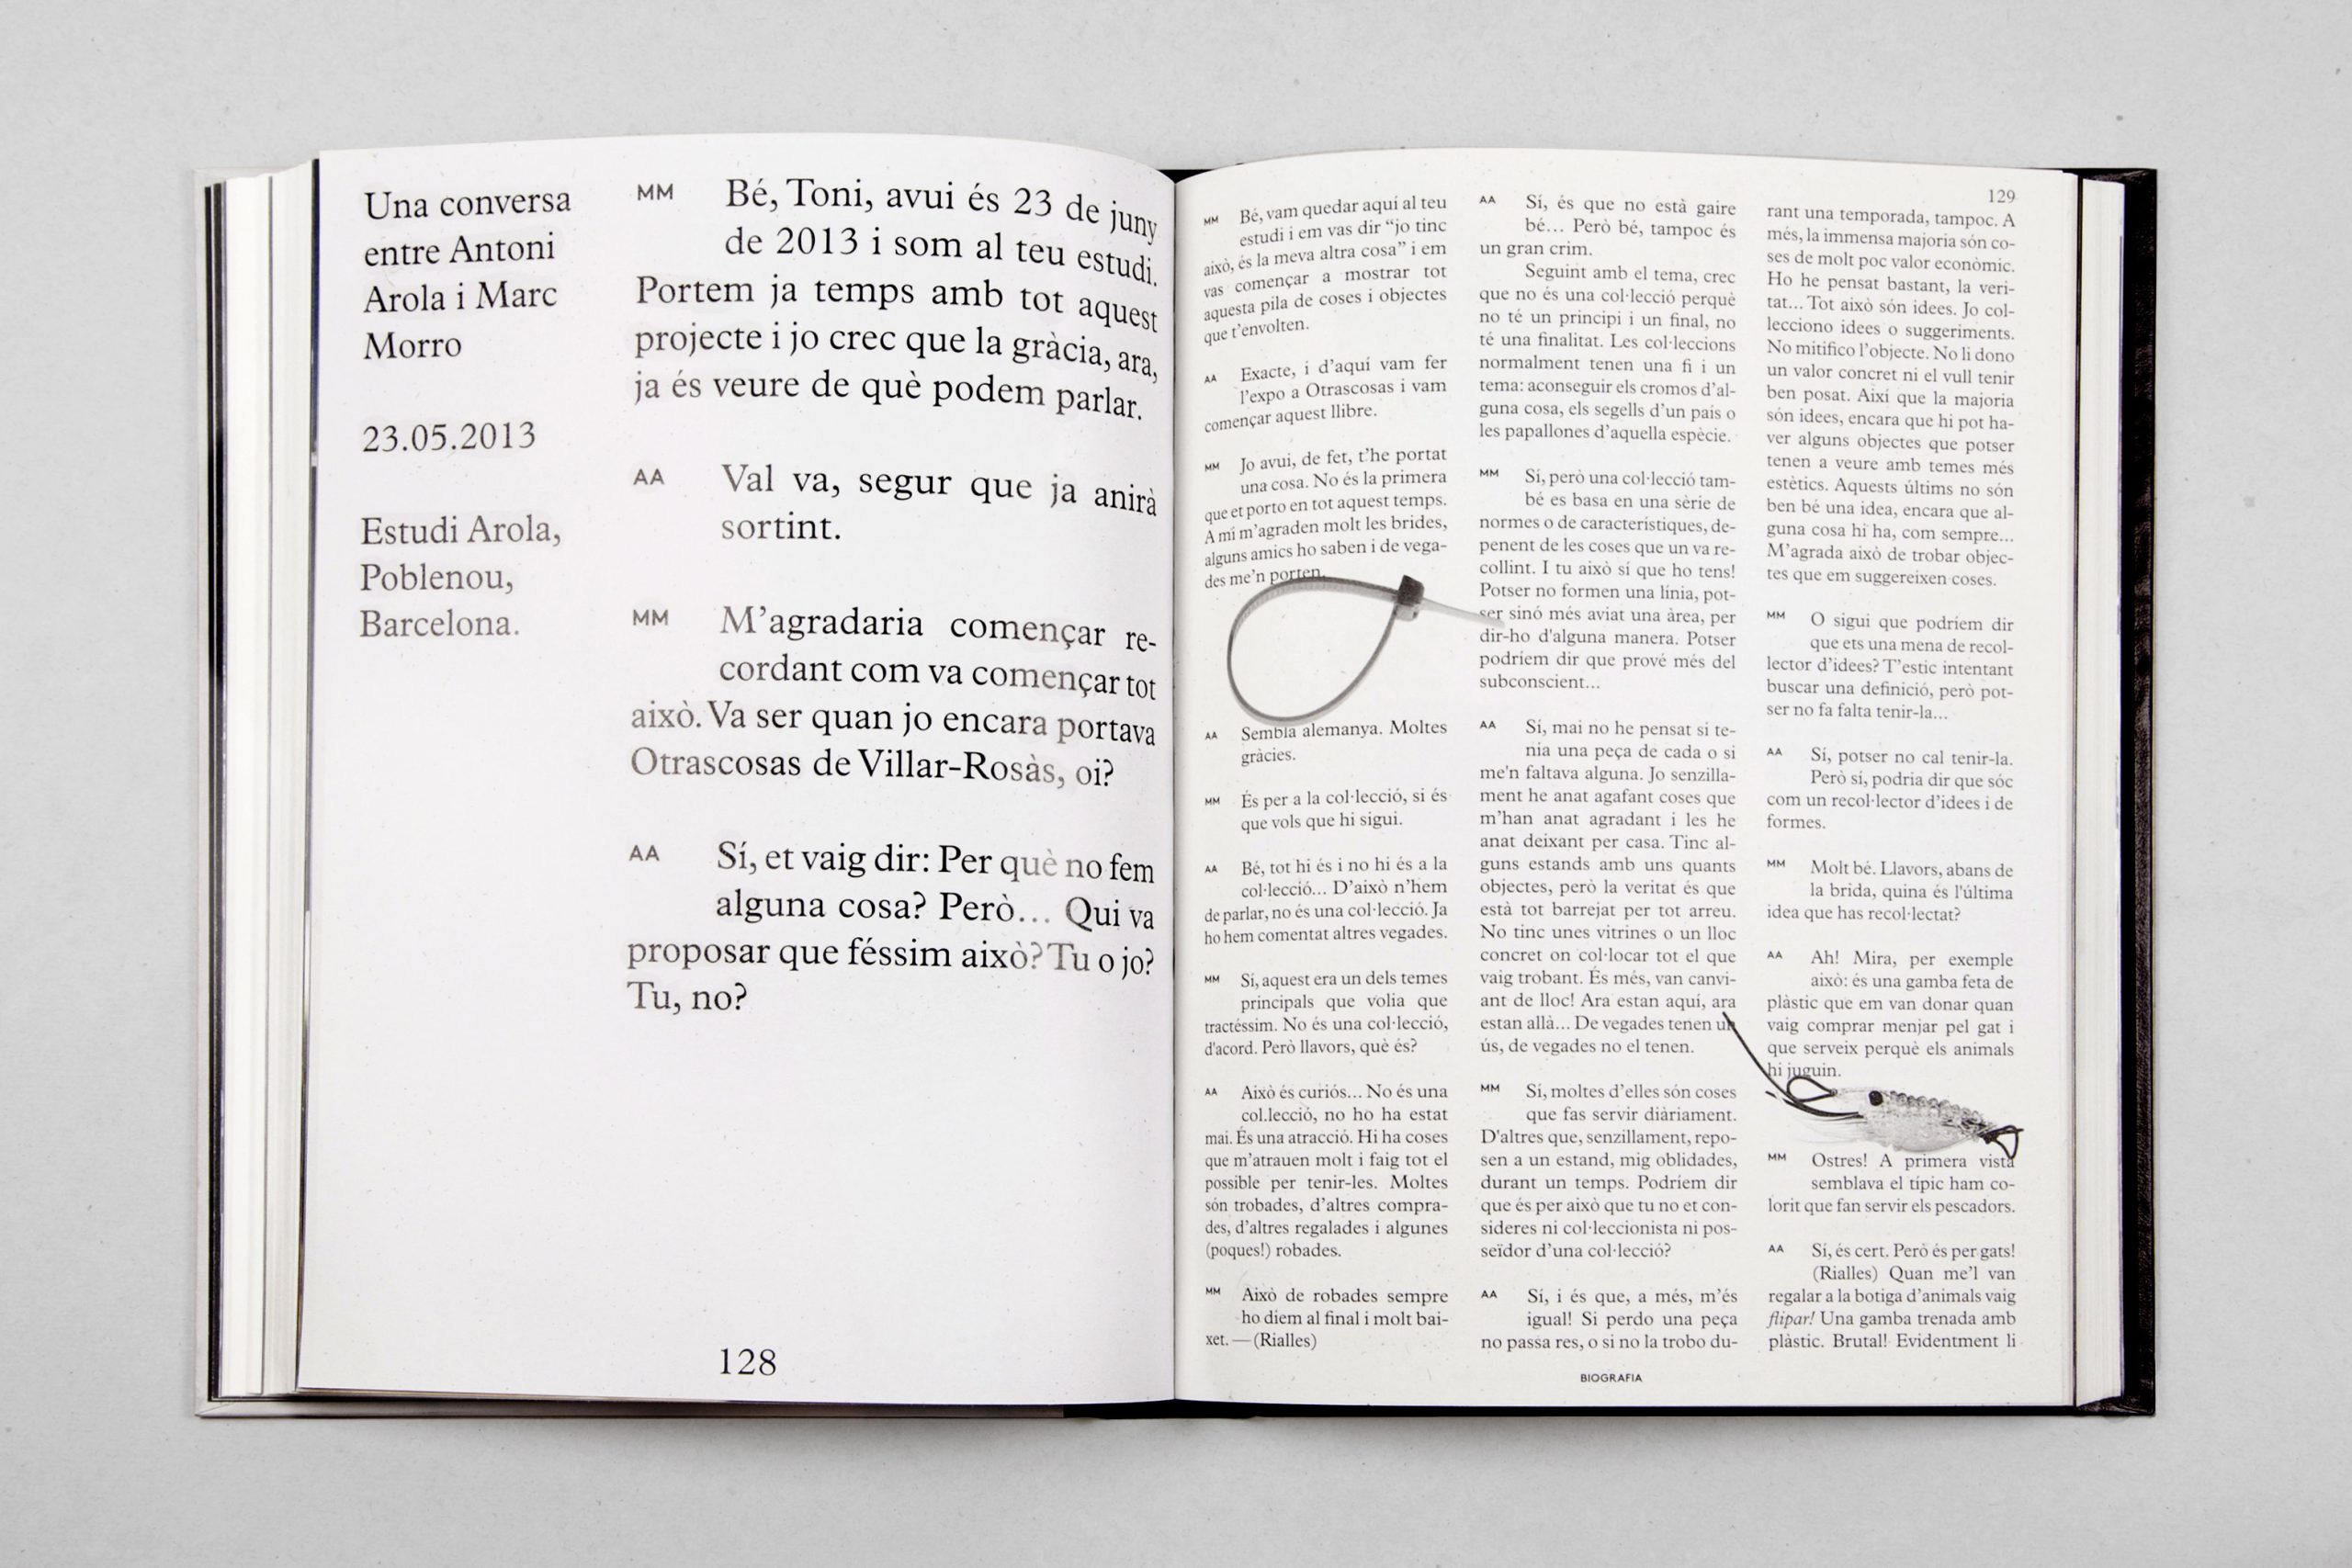 Una conversa
entre Antoni
Arola i Marc
Morro
23.05.2013
Estudi Arola,
Poblenou,
Barcelona.
MM Bé, Toni, avui és 23 de juny
de 2013 i som al teu estudi.
Portem ja temps amb tot aquest
projecte i jo crec que la gràcia, ara,
ja és veure de què podem parlar.
AA Val va, segur que ja anirà
sortint.
MM M’agradaria començar re-
cordant com va començar tot
això. Va ser quan jo encara portava
Otrascosas de Villar-Rosàs, oi?
AA Sí, et vaig dir: Per què no fem
alguna cosa? Però... Qui va
proposar que féssim això? Tu o jo?
Tu, no?
128
MM Bé, vam quedar aquí al teu
estudi i em vas dir “jo tinc
això, és la meva altra cosa” i em
vas començar a mostrar tot
aquesta pila de coses i objectes
que t’envolten.
AA Exacte, i d’aquí vam fer
l’expo a Otrascosas i vam
començar aquest llibre.
MM Jo avui, de fet, t’he portat
una cosa. No és la primera
que et porto en tot aquest temps.
A mí m’agraden molt les brides,
alguns amics ho saben i de vega-
des me’n porten.
AA Sembla alemanya. Moltes
gràcies.
MM És per a la col·lecció, si és
que vols que hi sigui.
AA Bé, tot hi és i no hi és a la
col·lecció... D’això n’hem
de parlar, no és una col·lecció. Ja
ho hem comentat altres vegades.
MM Sí, aquest era un dels temes
principals que volia que
tractéssim. No és una col·lecció,
d'acord. Però llavors, què és?
AA Això és curiós... No és una
col.lecció, no ho ha estat
mai. És una atracció. Hi ha coses
que m’atrauen molt i faig tot el
possible per tenir-les. Moltes
són trobades, d’altres compra-
des, d’altres regalades i algunes
(poques!) robades.
MM Això de robades sempre
ho diem al final i molt bai-
xet. — (Rialles)
AA Sí, és que no està gaire
bé... Però bé, tampoc és
un gran crim.
Seguint amb el tema, crec
que no és una col·lecció perquè
no té un principi i un final, no
té una finalitat. Les col·leccions
normalment tenen una fi i un
tema: aconseguir els cromos d’al-
guna cosa, els segells d’un país o
les papallones d’aquella espècie.
MM Sí, però una col·lecció tam-
bé es basa en una sèrie de
normes o de característiques, de-
penent de les coses que un va re-
collint. I tu això sí que ho tens!
Potser no formen una línia, pot-
ser sinó més aviat una àrea, per
dir-ho d'alguna manera. Potser
podríem dir que prové més del
subconscient...
AA Sí, mai no he pensat si te-
nia una peça de cada o si
me'n faltava alguna. Jo senzilla-
ment he anat agafant coses que
m’han anat agradant i les he
anat deixant per casa. Tinc al-
guns estands amb uns quants
objectes, però la veritat és que
està tot barrejat per tot arreu.
No tinc unes vitrines o un lloc
concret on col·locar tot el que
vaig trobant. És més, van canvi-
ant de lloc! Ara estan aquí, ara
estan allà... De vegades tenen un
ús, de vegades no el tenen.
MM Sí, moltes d’elles són coses
que fas servir diàriament.
D'altres que, senzillament, repo-
sen a un estand, mig oblidades,
durant un temps. Podríem dir
que és per això que tu no et con-
sideres ni col·leccionista ni pos-
seïdor d’una col·lecció?
AA Sí, i és que, a més, m’és
igual! Si perdo una peça
no passa res, o si no la trobo du-
129
rant una temporada, tampoc. A
més, la immensa majoria són co-
ses de molt poc valor econòmic.
Ho he pensat bastant, la veri-
tat... Tot això són idees. Jo col-
lecciono idees o suggeriments.
No mitifico l’objecte. No li dono
un valor concret ni el vull tenir
ben posat. Així que la majoria
són idees, encara que hi pot ha-
ver alguns objectes que potser
tenen a veure amb temes més
estètics. Aquests últims no són
ben bé una idea, encara que al-
guna cosa hi ha, com sempre...
M’agrada això de trobar objec-
tes que em suggereixen coses.
MM O sigui que podríem dir
que ets una mena de recol-
lector d’idees? T’estic intentant
buscar una definició, però pot-
ser no fa falta tenir-la...
AA Sí, potser no cal tenir-la.
Però sí, podria dir que sóc
com un recol·lector d’idees i de
formes.
MM Molt bé. Llavors, abans de
la brida, quina és l'última
idea que has recol·lectat?
AA Ah! Mira, per exemple
això: és una gamba feta de
plàstic que em van donar quan
vaig comprar menjar pel gat i
que serveix perquè els animals
hi juguin.
MM Ostres! A primera vista
semblava el típic ham co-
lorit que fan servir els pescadors.
AA Sí, és cert. Però és per gats!
(Rialles) Quan me’l van
regalar a la botiga d’animals vaig
flipar! Una gamba trenada amb
plàstic. Brutal! Evidentment li
BIOGRAFIA